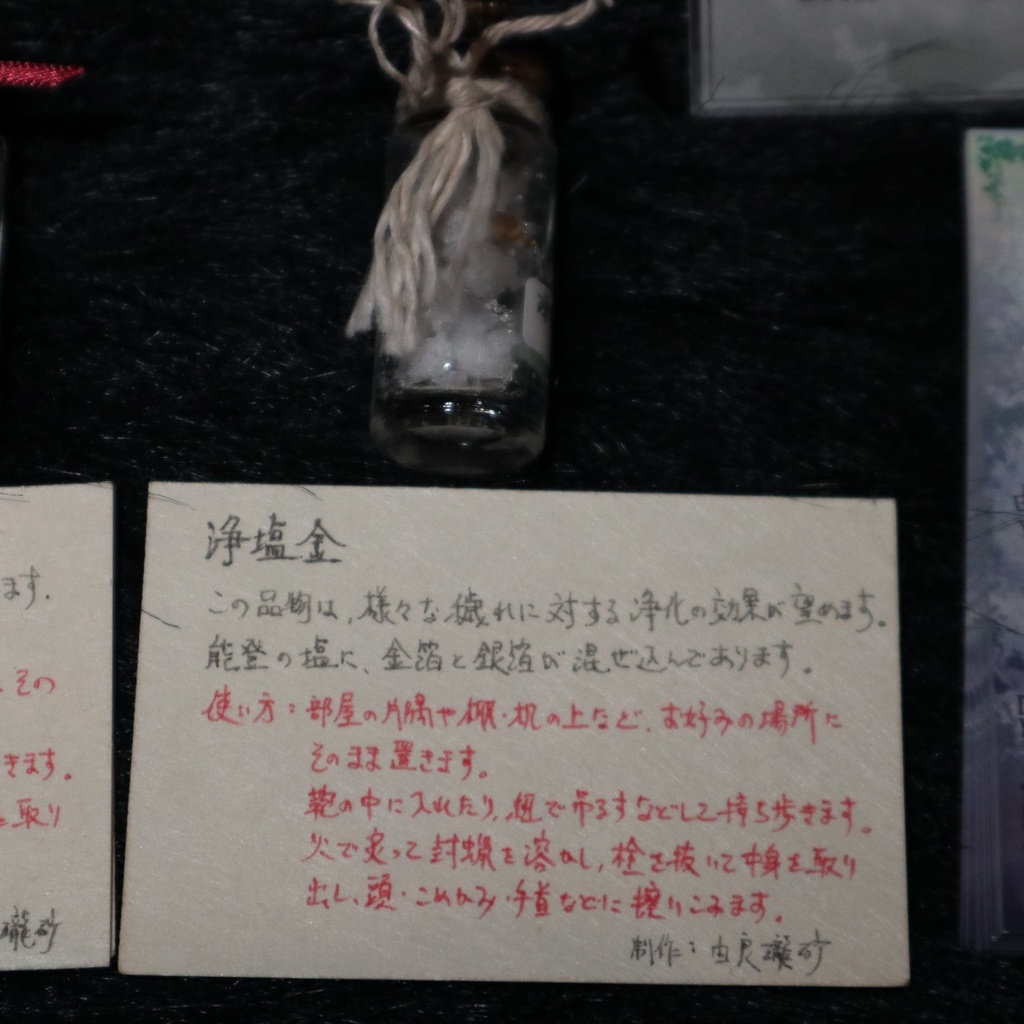 浄塩金
この品物は、様々な穢れに対する浄化の効果が望めます。
能登の塩に、金箔と銀箔が混ぜ込んであります。
使い方：部屋の片隅や棚・机の上など、お好みの場所に
そのまま置きます。
鞄の中に入れたり、紐で吊るすなどして持ち歩きます。
火で炙って封蝋を溶かし、栓を抜いて中身を取り
出し、頭・こめかみ・手首などに擦りこみます。
制作：由良瓏砂
ます。
、その
きます。
を取り
瓏砂